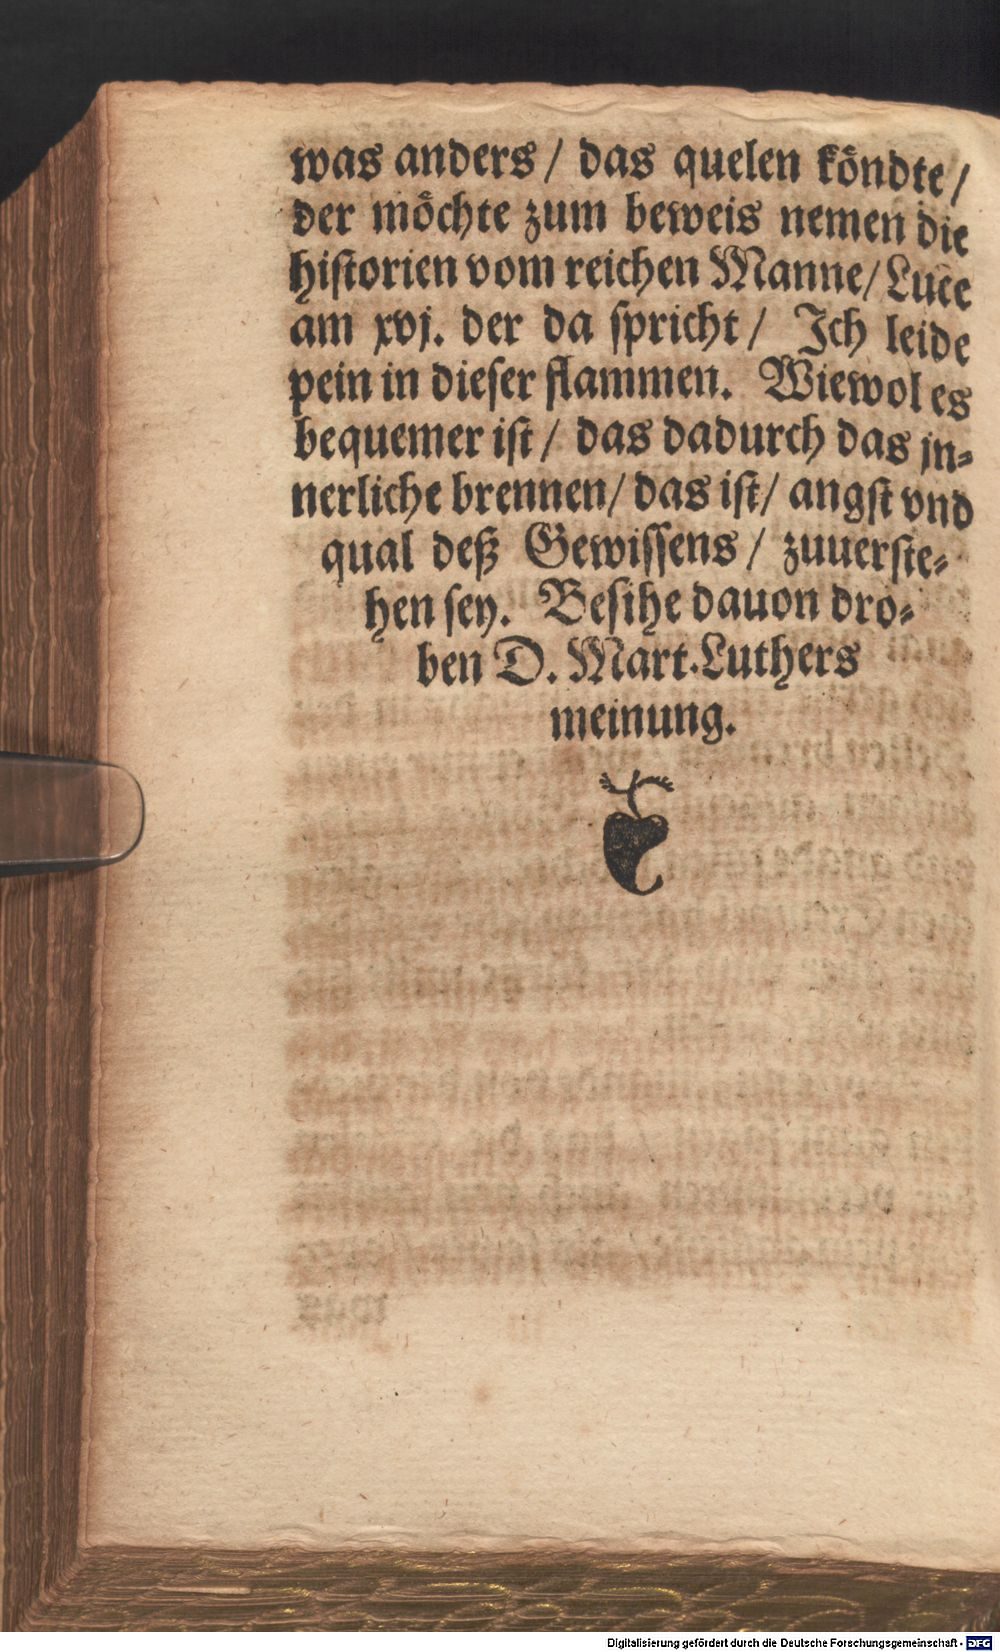 was anders / das quelen köndte /
der möchte zum beweis nemen die
historien vom reichen Manne / Luce
am xvj. der da spricht / Ich leide
pein in dieser flammen. Wiewol es
bequemer ist / das dadurch das jn⸗
nerliche brennen / das ist / angst vnd
qual deß Gewissens / zuuerste⸗
hen sey. Besihe dauon dro⸗
ben D. Mart. Luthers
meinung.
Digitalisierung gefördert durch die Deutsche Forschungsgemeinschaft - DFG